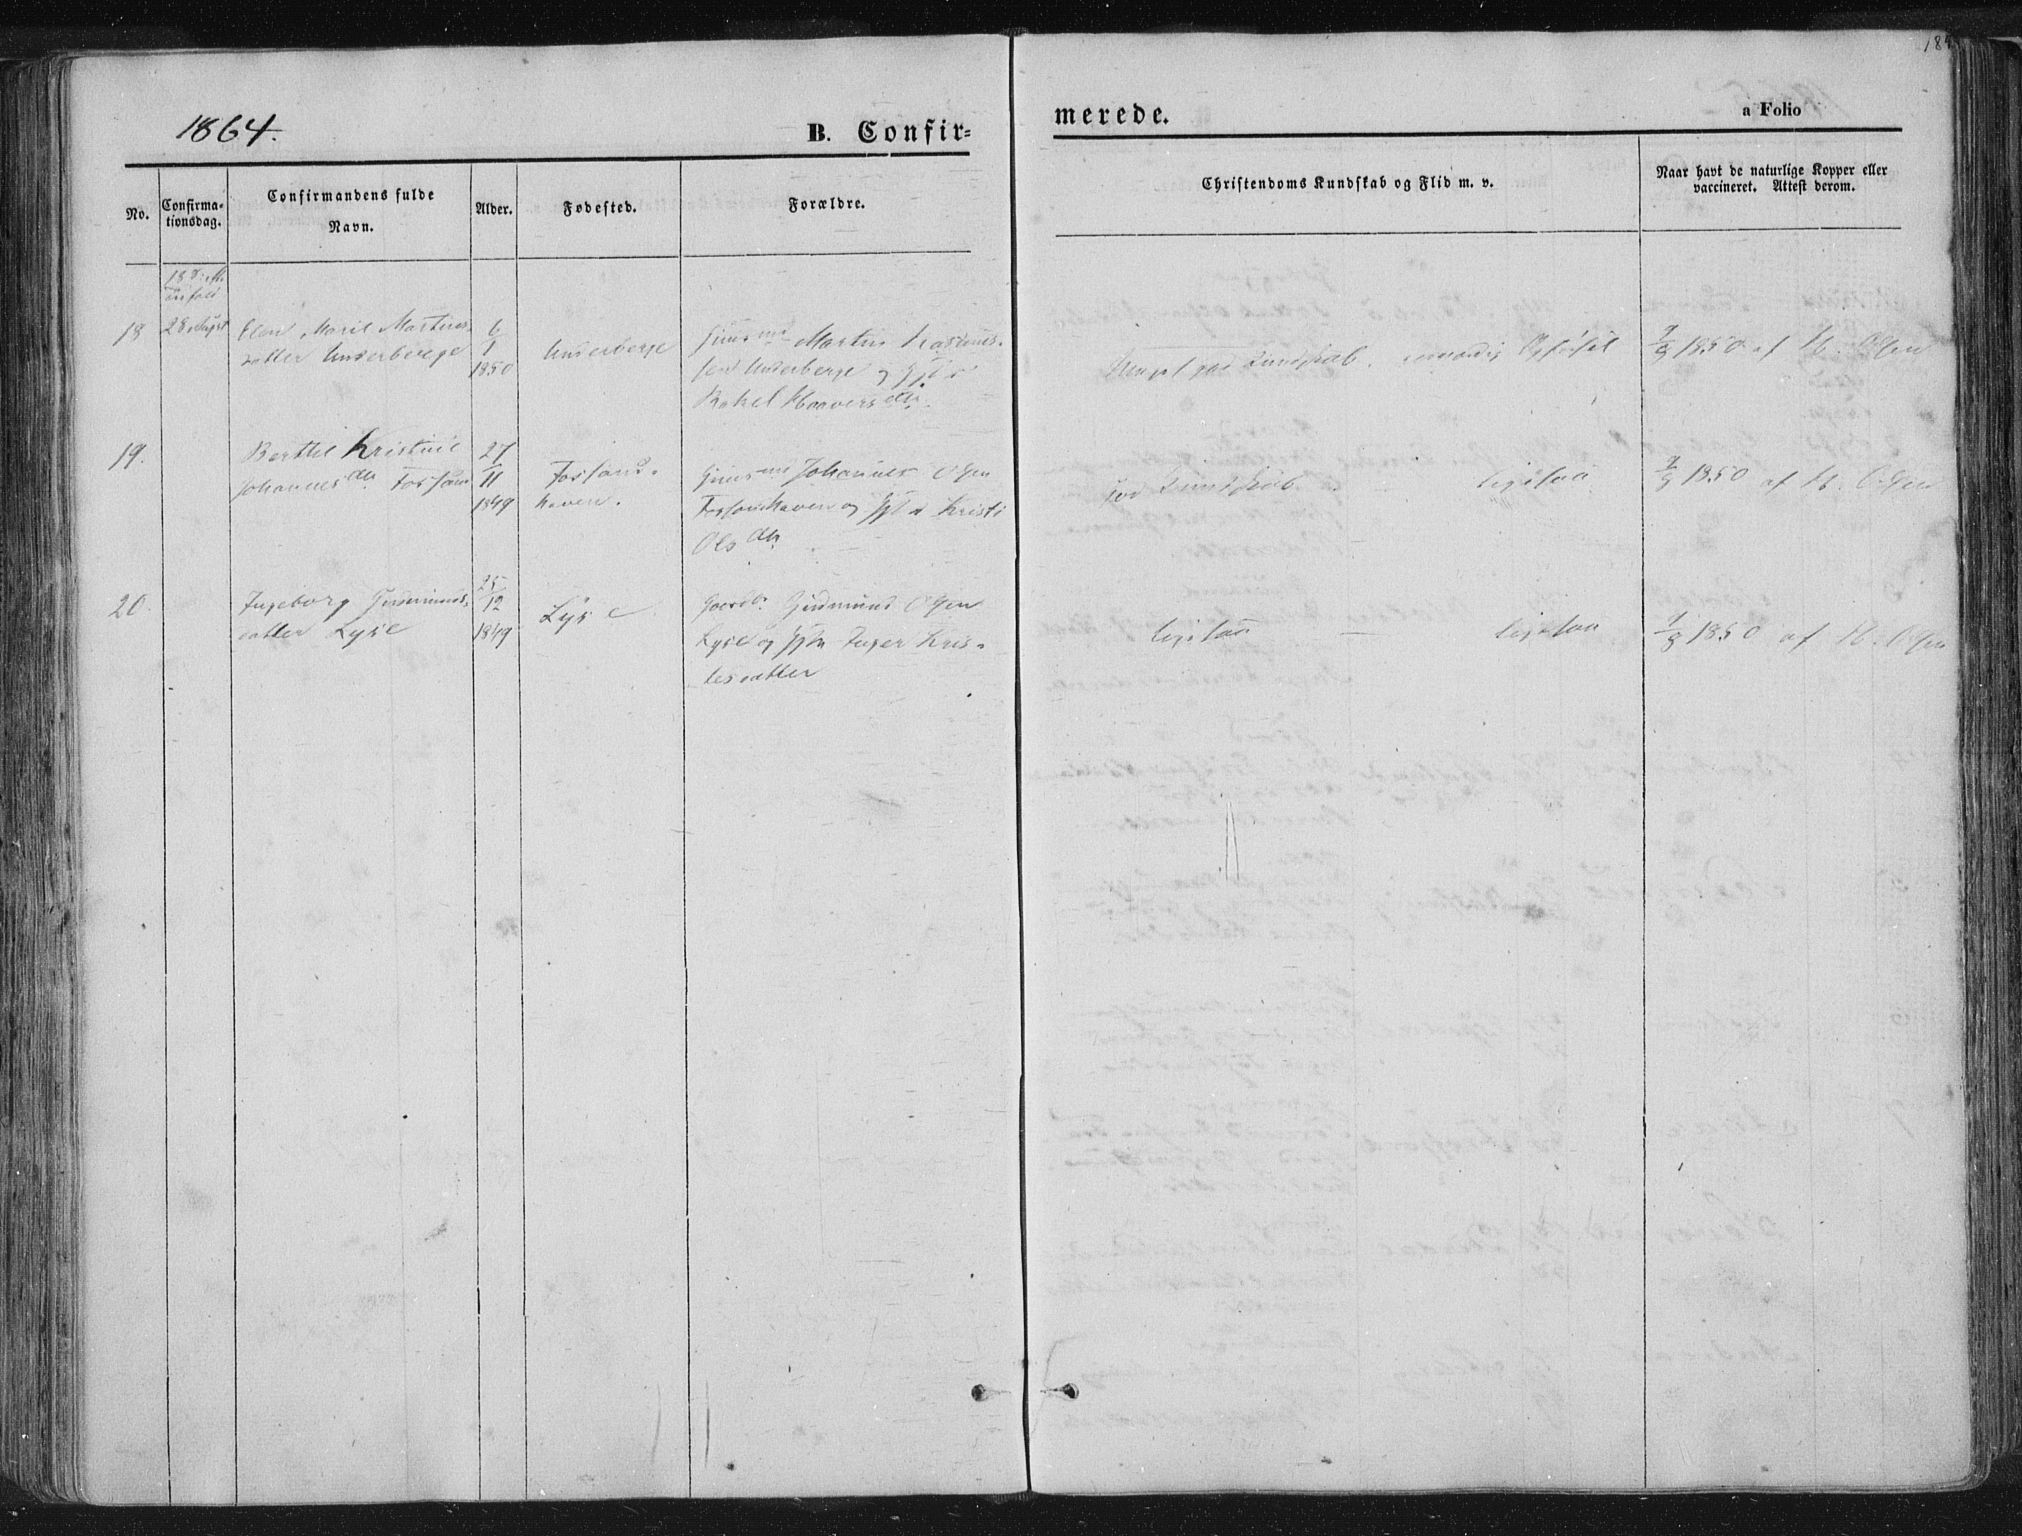 184
1864.
B. Confir=
merede.
a Folio
No.
Confirma-
tionsdag.
Confirmandens fulde
Navn.
Alder.
Fødested.
Forældre.
Christendoms Kundskab og Flid m. v.
Naar havt de naturlige Kopper eller
vaccineret. Attest derom.
18
28 August
Elen Marie Martins-
datter Underberge
6
1
1850
Underberge
Martin Rasmus-
sen Underberge og
Rakel Haavers dtr.
Meget god Kundskab. Opførsel
9/8 1850 af H. Olsen
19.
Berthe Kristine
Johannes dtr. Forsan
27
11
1849
Forsand-
haven.
Johannes Olsen
Forsandhaven og Kristi
Ols dtr.
god Kundskab — ligesaa
9/8 1850 af H. Olsen
20.
Ingeborg Gudmunds-
datter Lyse
25
12
1849
Lyse
Gaardb. Gudmund Olsen
Lyse og Inger Kris-
tesdatter
ligesaa — ligesaa
9/8 1850 af H. Olsen